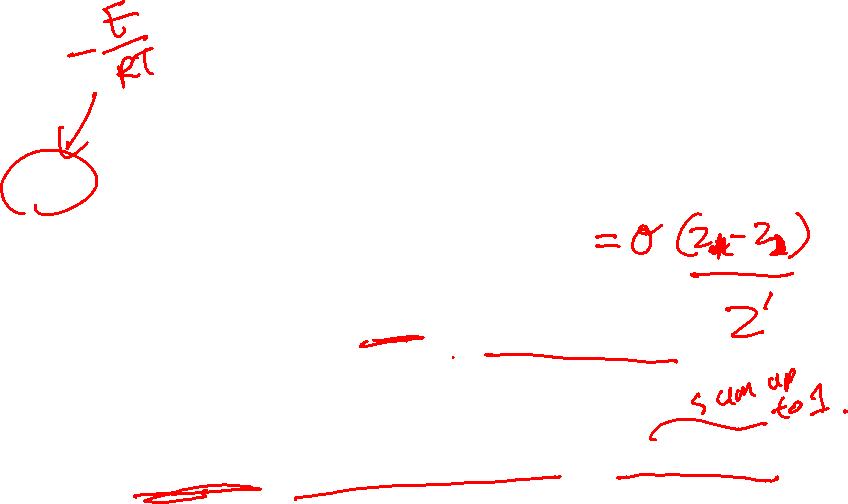 - E/RT
= σ (z₁ - z₂)
z'
sum up
to 1.